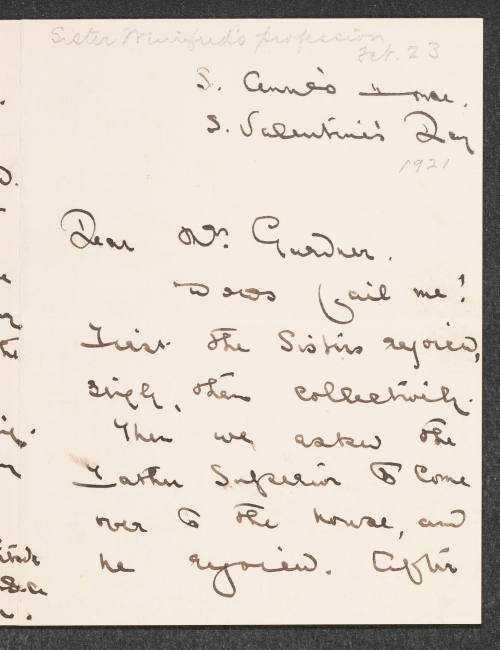 Sister Winifred's profession
Feb. 23
S. Anne's House.
S. Valentine's Day
1921
Dear Mrs. Gardner.
Words fail me!
First the Sisters rejoiced,
singly, then collectively.
Then we asked the
Father Superior to come
over to the house, and
he rejoiced. After